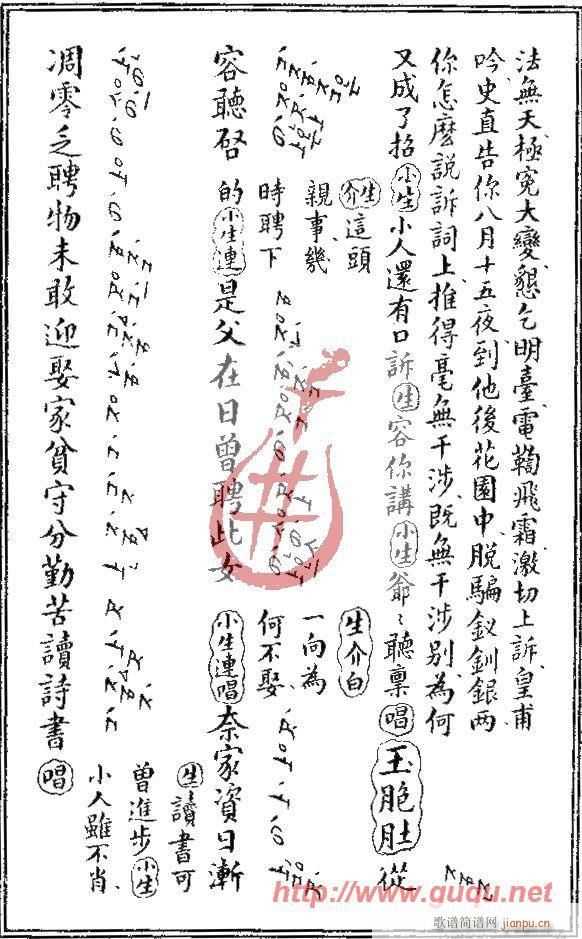 法無天極寃大變懇乞明臺電鞫飛霜激切上訴皇甫
吟史直告你八月十五夜到他後花園中脫騙釵釧銀两
你怎麽説訴詞上推得毫無干涉既無干涉别為何
又成了招小生小人還有口訴生容你講小生爺〻聽禀唱玉胞肚從
容聽启
生介這頭
親事幾
時聘下
的小生連是父在日曾聘此女
生介白
一向為
何不娶
小生連唱奈家資日漸
凋零乏聘物未敢迎娶家貧守分勤苦讀詩書
生讀書可
曾進步小生
小人雖不肖
唱
http://www.guqu.net
歌谱简谱网
jianpu.cn